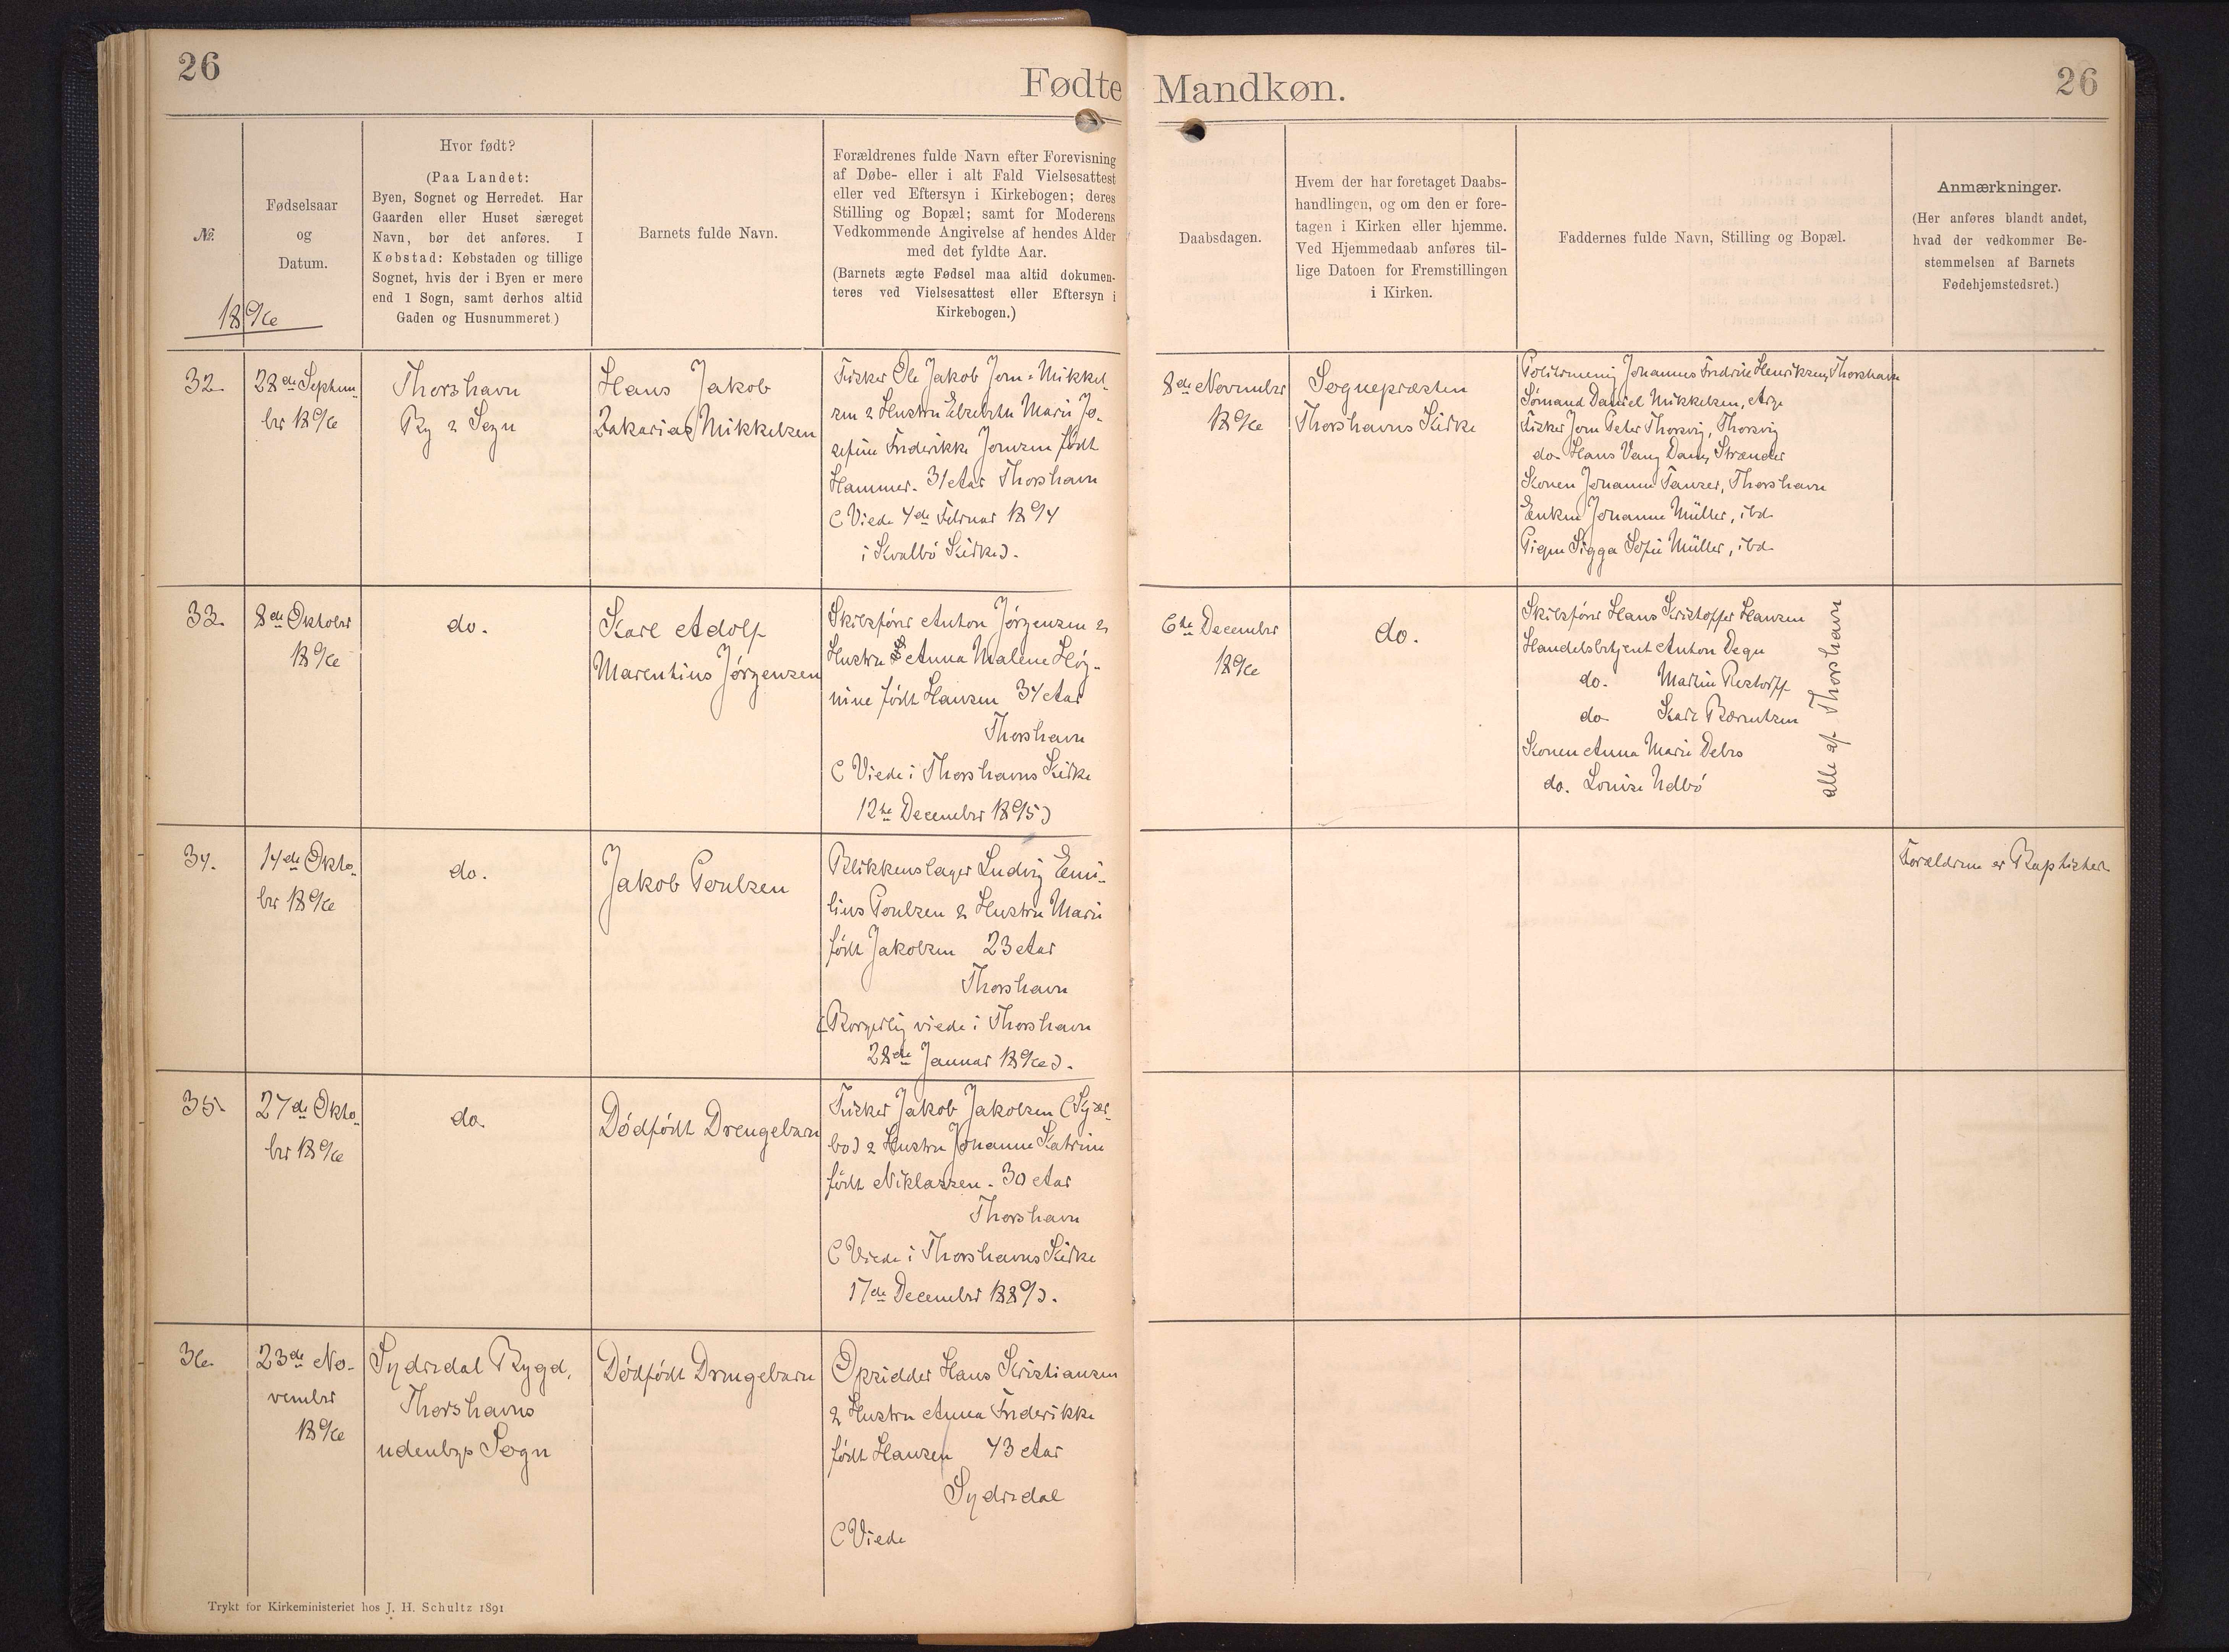 26
Fødte Mandkøn.
26
№
Fødselsaar
og
Datum.
1896
Hvor født?
(Paa Landet:
Byen, Sognet og Herredet. Har
Gaarden eller Huset særeget
Navn, bør det anføres. I
Købstad: Købstaden og tillige
Sognet, hvis der i Byen er mere
end 1 Sogn, samt derhos altid
Gaden og Husnummeret)
Barnets fulde Navn.
Forældrenes fulde Navn efter Forevisning
af Døbe- eller i alt Fald Vielsesattest
eller ved Eftersyn i Kirkebogen; deres
Stilling og Bopæl; samt for Moderens
Vedkommende Angivelse af hendes Alder
med det fyldte Aar.
(Barnets ægte Fødsel maa altid dokumen-
teres ved Vielsesattest eller Eftersyn i
Kirkebogen.)
Daabsdagen.
Hvem der har foretaget Daabs-
handlingen, og om den er fore-
tagen i Kirken eller hjemme.
Ved Hjemmedaab anføres til-
lige Datoen for Fremstillingen
i Kirken.
Faddernes fulde Navn, Stilling og Bopæl.
Anmærkninger.
(Her anføres blandt andet,
hvad der vedkommer Be-
stemmelsen af Barnets
Fødehjemstedsret.)
32.
28de Septem-
ber 1896
Thorshavn
By & Sogn
Hans Jakob
Zakarias Mikkelsen
Fisker Ole Jakob Joen-Mikkel-
sen & Hustru Elsebeth Marie Jo-
sefine Frederikke Joensen født
Hammer. 31 Aar Thorshavn
(Viede 4de Februar 1894
i Kvalbø Kirke).
8de November
1896
Sognepræsten
Thorshavns Kirke
Politimenig Johannes Fredrik Henriksen, Thorshavn
Sømand Daniel Mikkelsen, Arge
Fisker Joen Peter Thorsvig, Thorsvig
do. Hans Vang Dam, Strænder
Konen Johanne Hansen, Thorshavn
Enken Johanne Müller, ibd.
Pigen Sigga Sofie Müller, ibd.
33.
8de Oktober
1896
do.
Karl Adolf
Marentius Jørgensen
Skibsfører Anton Jørgensen &
Hustru Anna Malene Høg-
nine født Hansen 34 Aar
Thorshavn
(Viede i Thorshavns Kirke
12te December 1895)
6te December
1896
do.
Skibsfører Hans Kristoffer Hansen
Handelsbetjent Anton Degn
do. Martin Restorff
do. Karl Bærentsen
Konen Anna Marie Debes
do. Louise Udbø
alle af Thorshavn
34.
14de Okto-
ber 1896
do.
Jakob Poulsen
Blikkenslager Ludvig Emi-
lius Poulsen & Hustru Marie
født Jakobsen 23 Aar
Thorshavn
(Borgerlig viede i Thorshavn
28de Januar 1896).
Forældrene er Baptister.
35.
27de Okto-
ber 1896
do.
Dødfødt Drengebarn
Fisker Jakob Jakobsen (Kjær-
bo) & Hustru Johanne Katrine
født Niklassen. 30 Aar
Thorshavn
(Viede i Thorshavns Kirke
17de December 1889).
36.
23de No-
vember
1896
Sydredal Bygd,
Thorshavns
udenbys Sogn
Dødfødt Drengebarn
Opsidder Hans Kristiansen
& Hustru Anna Frederikke
født Hansen 43 Aar
Sydredal
(Viede
Trykt for Kirkeministeriet hos J. H. Schultz 1891